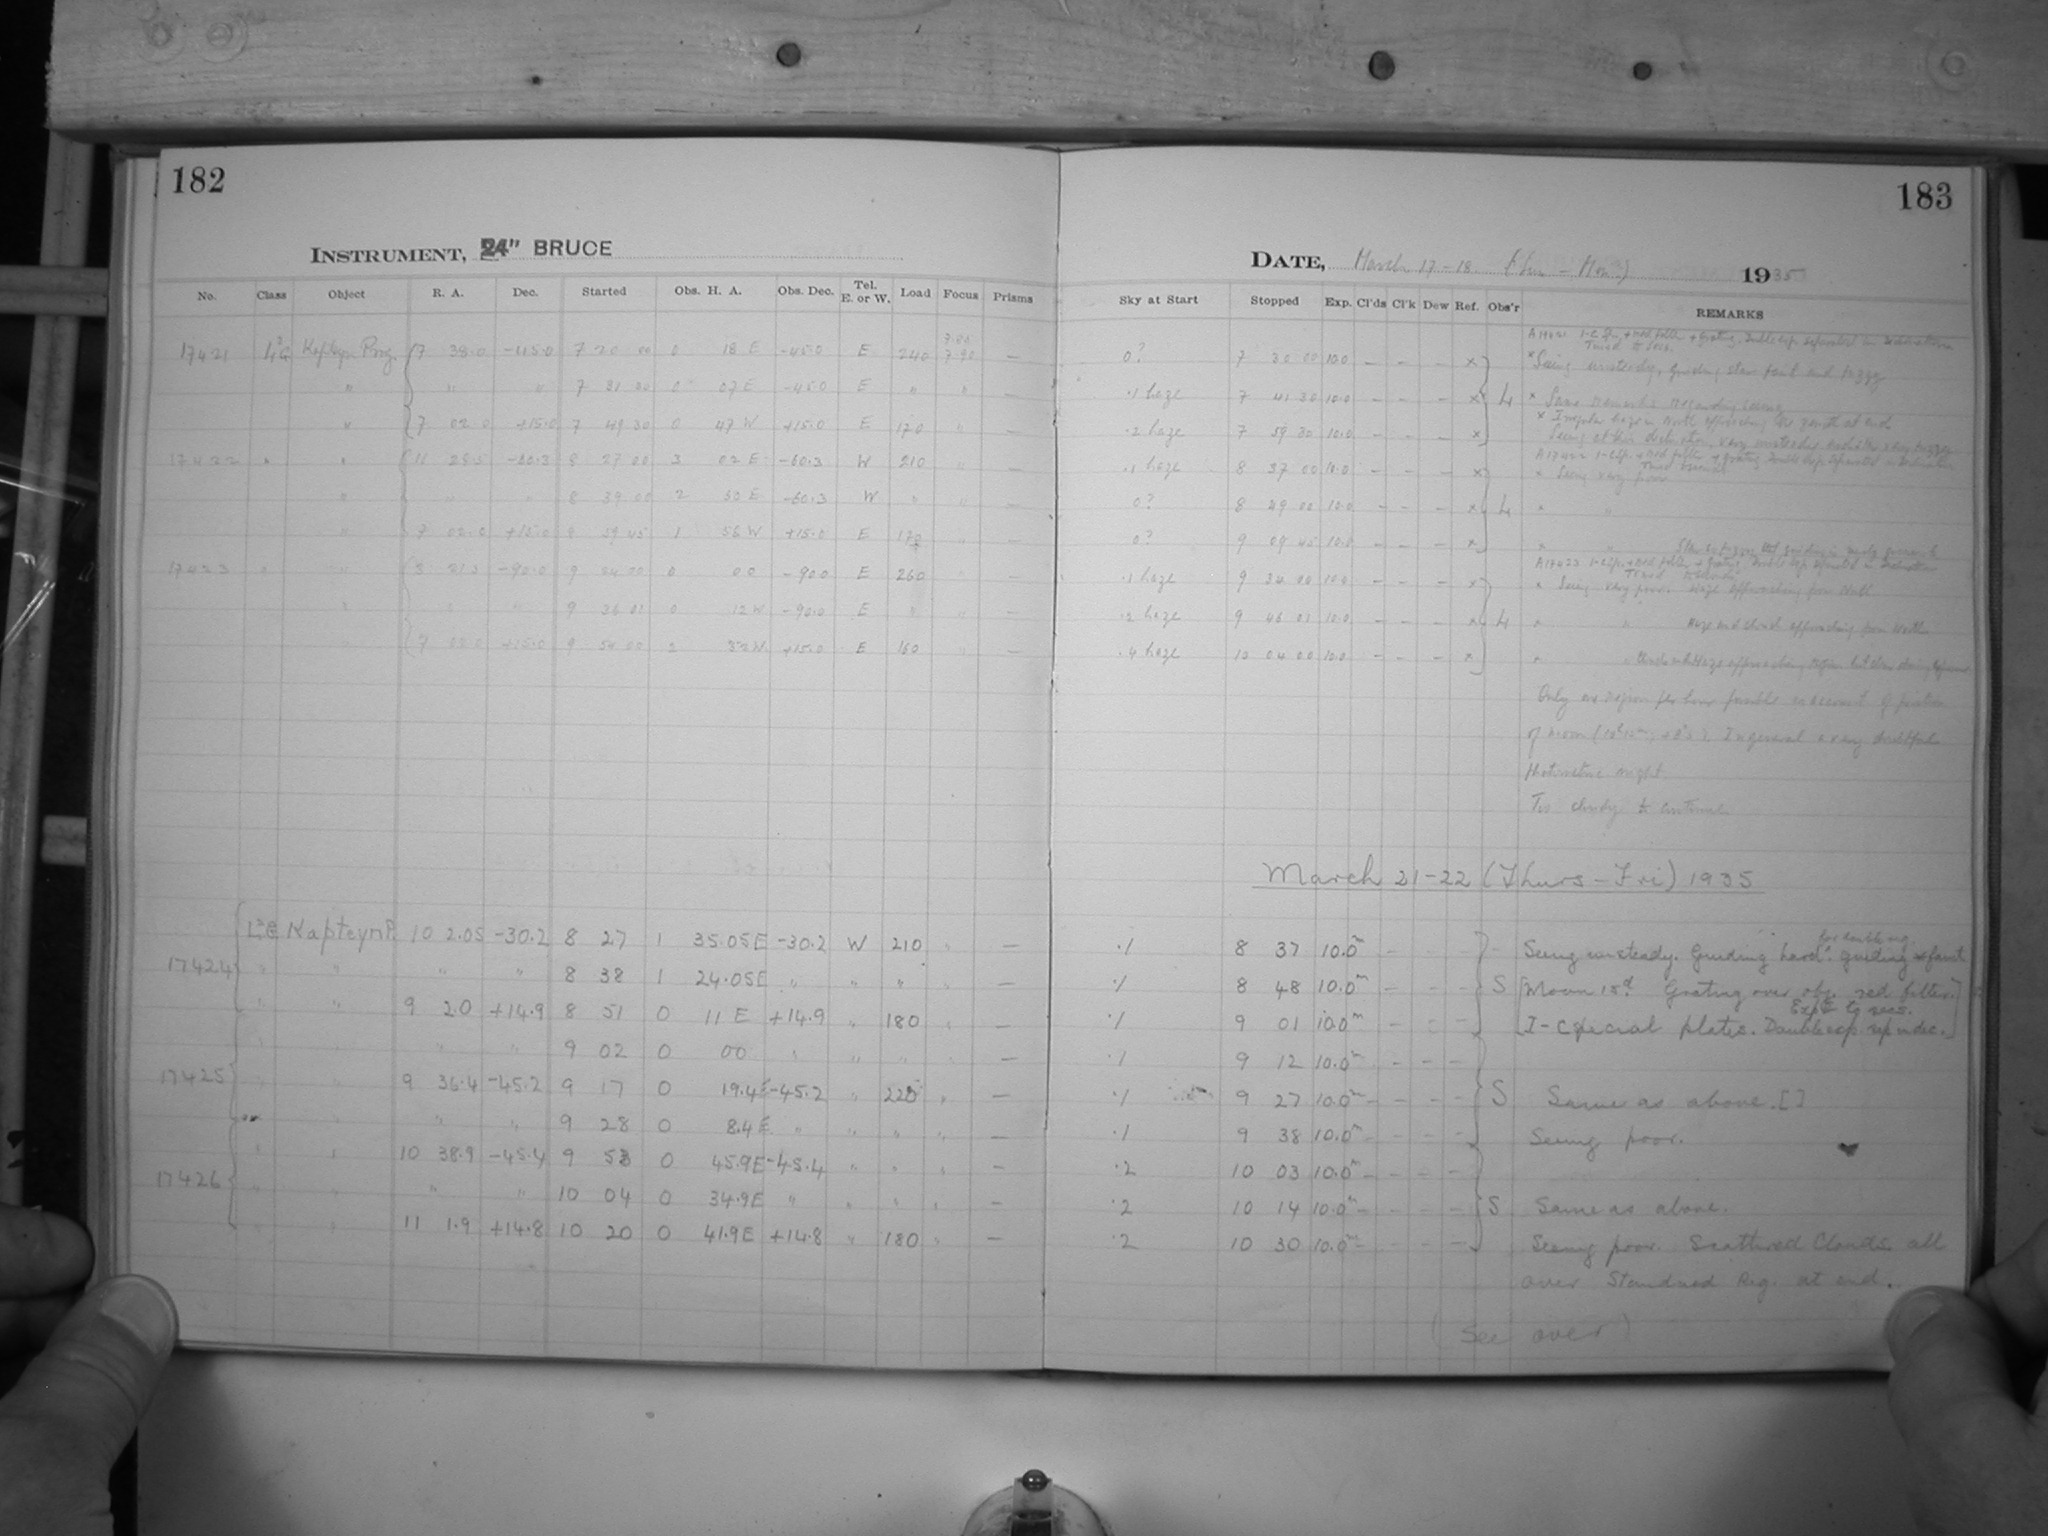 182
183
INSTRUMENT, 24" BRUCE
DATE, March 17-18 (Sun - Mon) 1935
No. Class Object R. A. Dec. Started Obs. H. A. Obs. Dec. Tel. E. or W. Load Focus Prisms
Sky at Start Stopped Exp. Cl'ds Cl'k Dew Ref. Obs'r REMARKS
17421 Kapteyn Prog. 7 38.0 -45.0 7 20 00 0 18 E -45.0 E 240 7.90 — 0? 7 30 00 10.0 — — — x
x Seeing unsteady, guiding star faint and fuzzy
" " " 7 31 30 0 07 E -45.0 E " " — .1 haze 7 41 30 10.0 — — — x
x Same remarks regarding seeing
" 7 02 0 +15.0 7 49 30 0 47 W +15.0 E 170 " — .2 haze 7 59 30 10.0 — — — x
17422 " " 11 -60.3 8 27 00 3 02 E -60.3 W 210 " — .1 haze 8 37 00 10.0 — — — x
x Seeing very poor
" " " 8 39 00 2 50 E -60.3 W " " — 0? 8 49 00 10.0 — — — x
" 7 02.0 +15.0 8 59 45 1 56 W +15.0 E 170 " — 0? 9 09 45 10.0 — — — x
17423 " " -90.0 9 24 00 0 00 -90.0 E 260 " — .1 haze 9 34 00 10.0 — — — x
x Seeing very poor. Haze approaching from North
" " " 9 36 01 0 12 W -90.0 E " " — .2 haze 9 46 01 10.0 — — — x
x " Haze and cloud approaching from North
7 02.0 +15.0 9 54 00 2 52 W +15.0 E 160 — .4 haze 10 04 00 10.0 — — — x
Only one region per hour possible on account of position
of moon In general a very doubtful
photometric night.
Too cloudy to continue
March 21-22 (Thurs - Fri) 1935
Kapteyn P. 10 2.05 -30.2 8 27 1 35.05E -30.2 W 210 " — .1 8 37 10.0m - - - -
Seeing unsteady. Guiding hard. guiding * faint
17424 " " " " 8 38 1 24.05E " " " " — .1 8 48 10.0m - - - S
[Moon 15d. Grating over obj. red filter.]
" " 9 2.0 +14.9 8 51 0 11 E +14.9 " 180 " — .1 9 01 10.0m - - -
[I-C special plates. Double exp. sep in dec.]
" " " " 9 02 0 00 " " " " — .1 9 12 10.0m - - -
17425 " " 9 36.4 -45.2 9 17 0 19.4E -45.2 " 220 " — .1 9 27 10.0m - - - S
Same as above. [ ]
" " " 9 28 0 8.4E " " " " — .1 9 38 10.0m - - -
Seeing poor.
" " 10 38.9 -45.4 9 53 0 45.9E -45.4 " " " — .2 10 03 10.0m - - -
17426 " " " " 10 04 0 34.9E " " " " — .2 10 14 10.0m - - - S
Same as above.
" " 11 1.9 +14.8 10 20 0 41.9E +14.8 " 180 " — .2 10 30 10.0m - - -
Seeing poor. Scattered Clouds all
over Standard Reg. at end.
(See over)